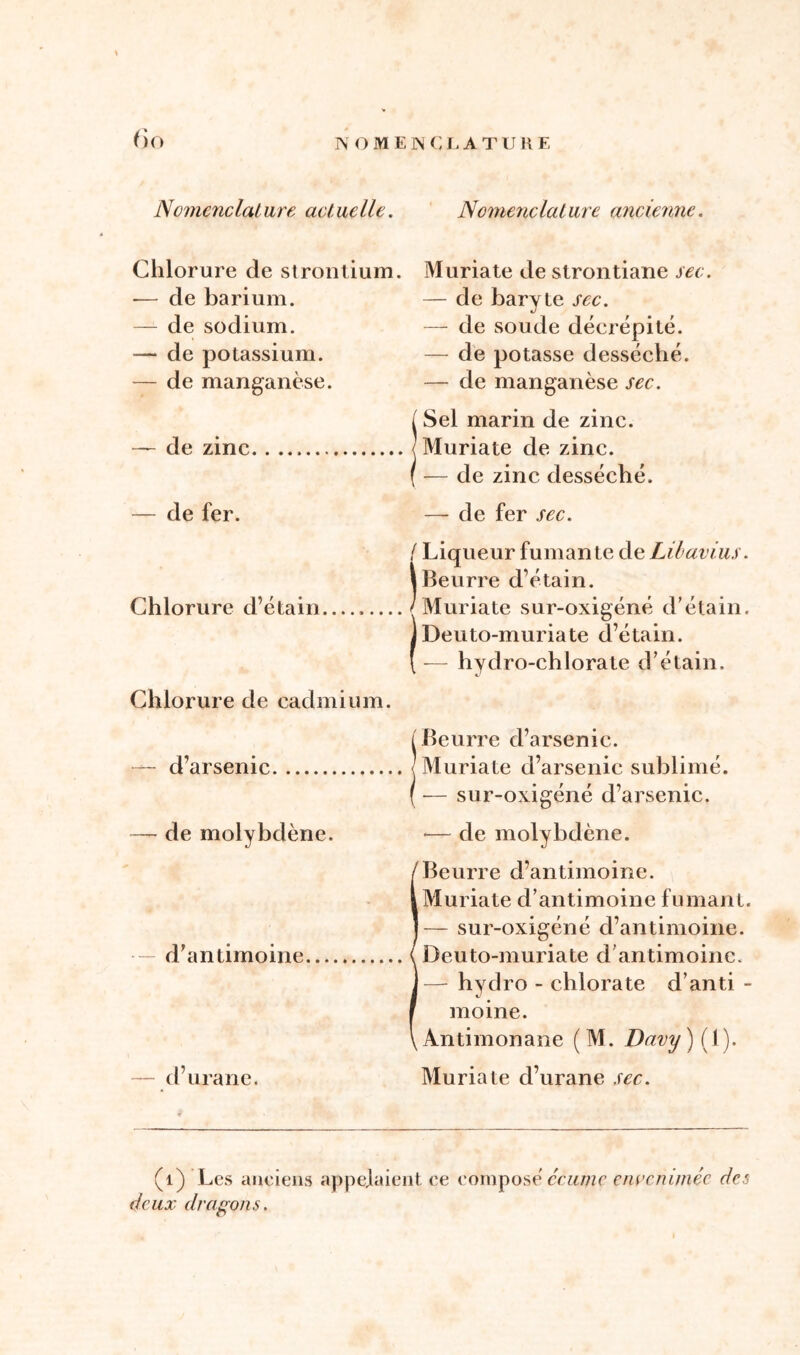 60 NOMENCLATURE
Nomenclature actuelle. Nomenclature ancienne.
Chlorure de strontium. Muriate de strontiane sec.
— de barium. — de baryte sec.
— de sodium. — de soude décrépité.
— de potassium. — de potasse desséché.
— de manganèse. — de manganèse sec.
Sel marin de zinc.
— de zinc.................. Muriate de zinc.
— de zinc desséché.
— de fer. — de fer sec.
Liqueur fumante de Libavius.
Beurre d'étain.
Chlorure d'étain.......... Muriate sur-oxigéné d'étain.
Deuto-muriate d'étain.
— hydro-chlorate d'étain.
Chlorure de cadmium.
Beurre d'arsenic.
— d'arsenic............... Muriate d'arsenic sublimé.
— sur-oxigéné d'arsenic.
— de molybdène. — de molybdène.
Beurre d'antimoine.
Muriate d'antimoine fumant.
— sur-oxigéné d'antimoine.
— d'antimoine............ Deuto-muriate d'antimoine.
— hydro-chlorate d'anti-
moine.
Antimonane (M. Davy) (1).
— d'urane. Muriate d'urane sec.
(1) Les anciens appelaient ce composé écume envenimée des
deux dragons.